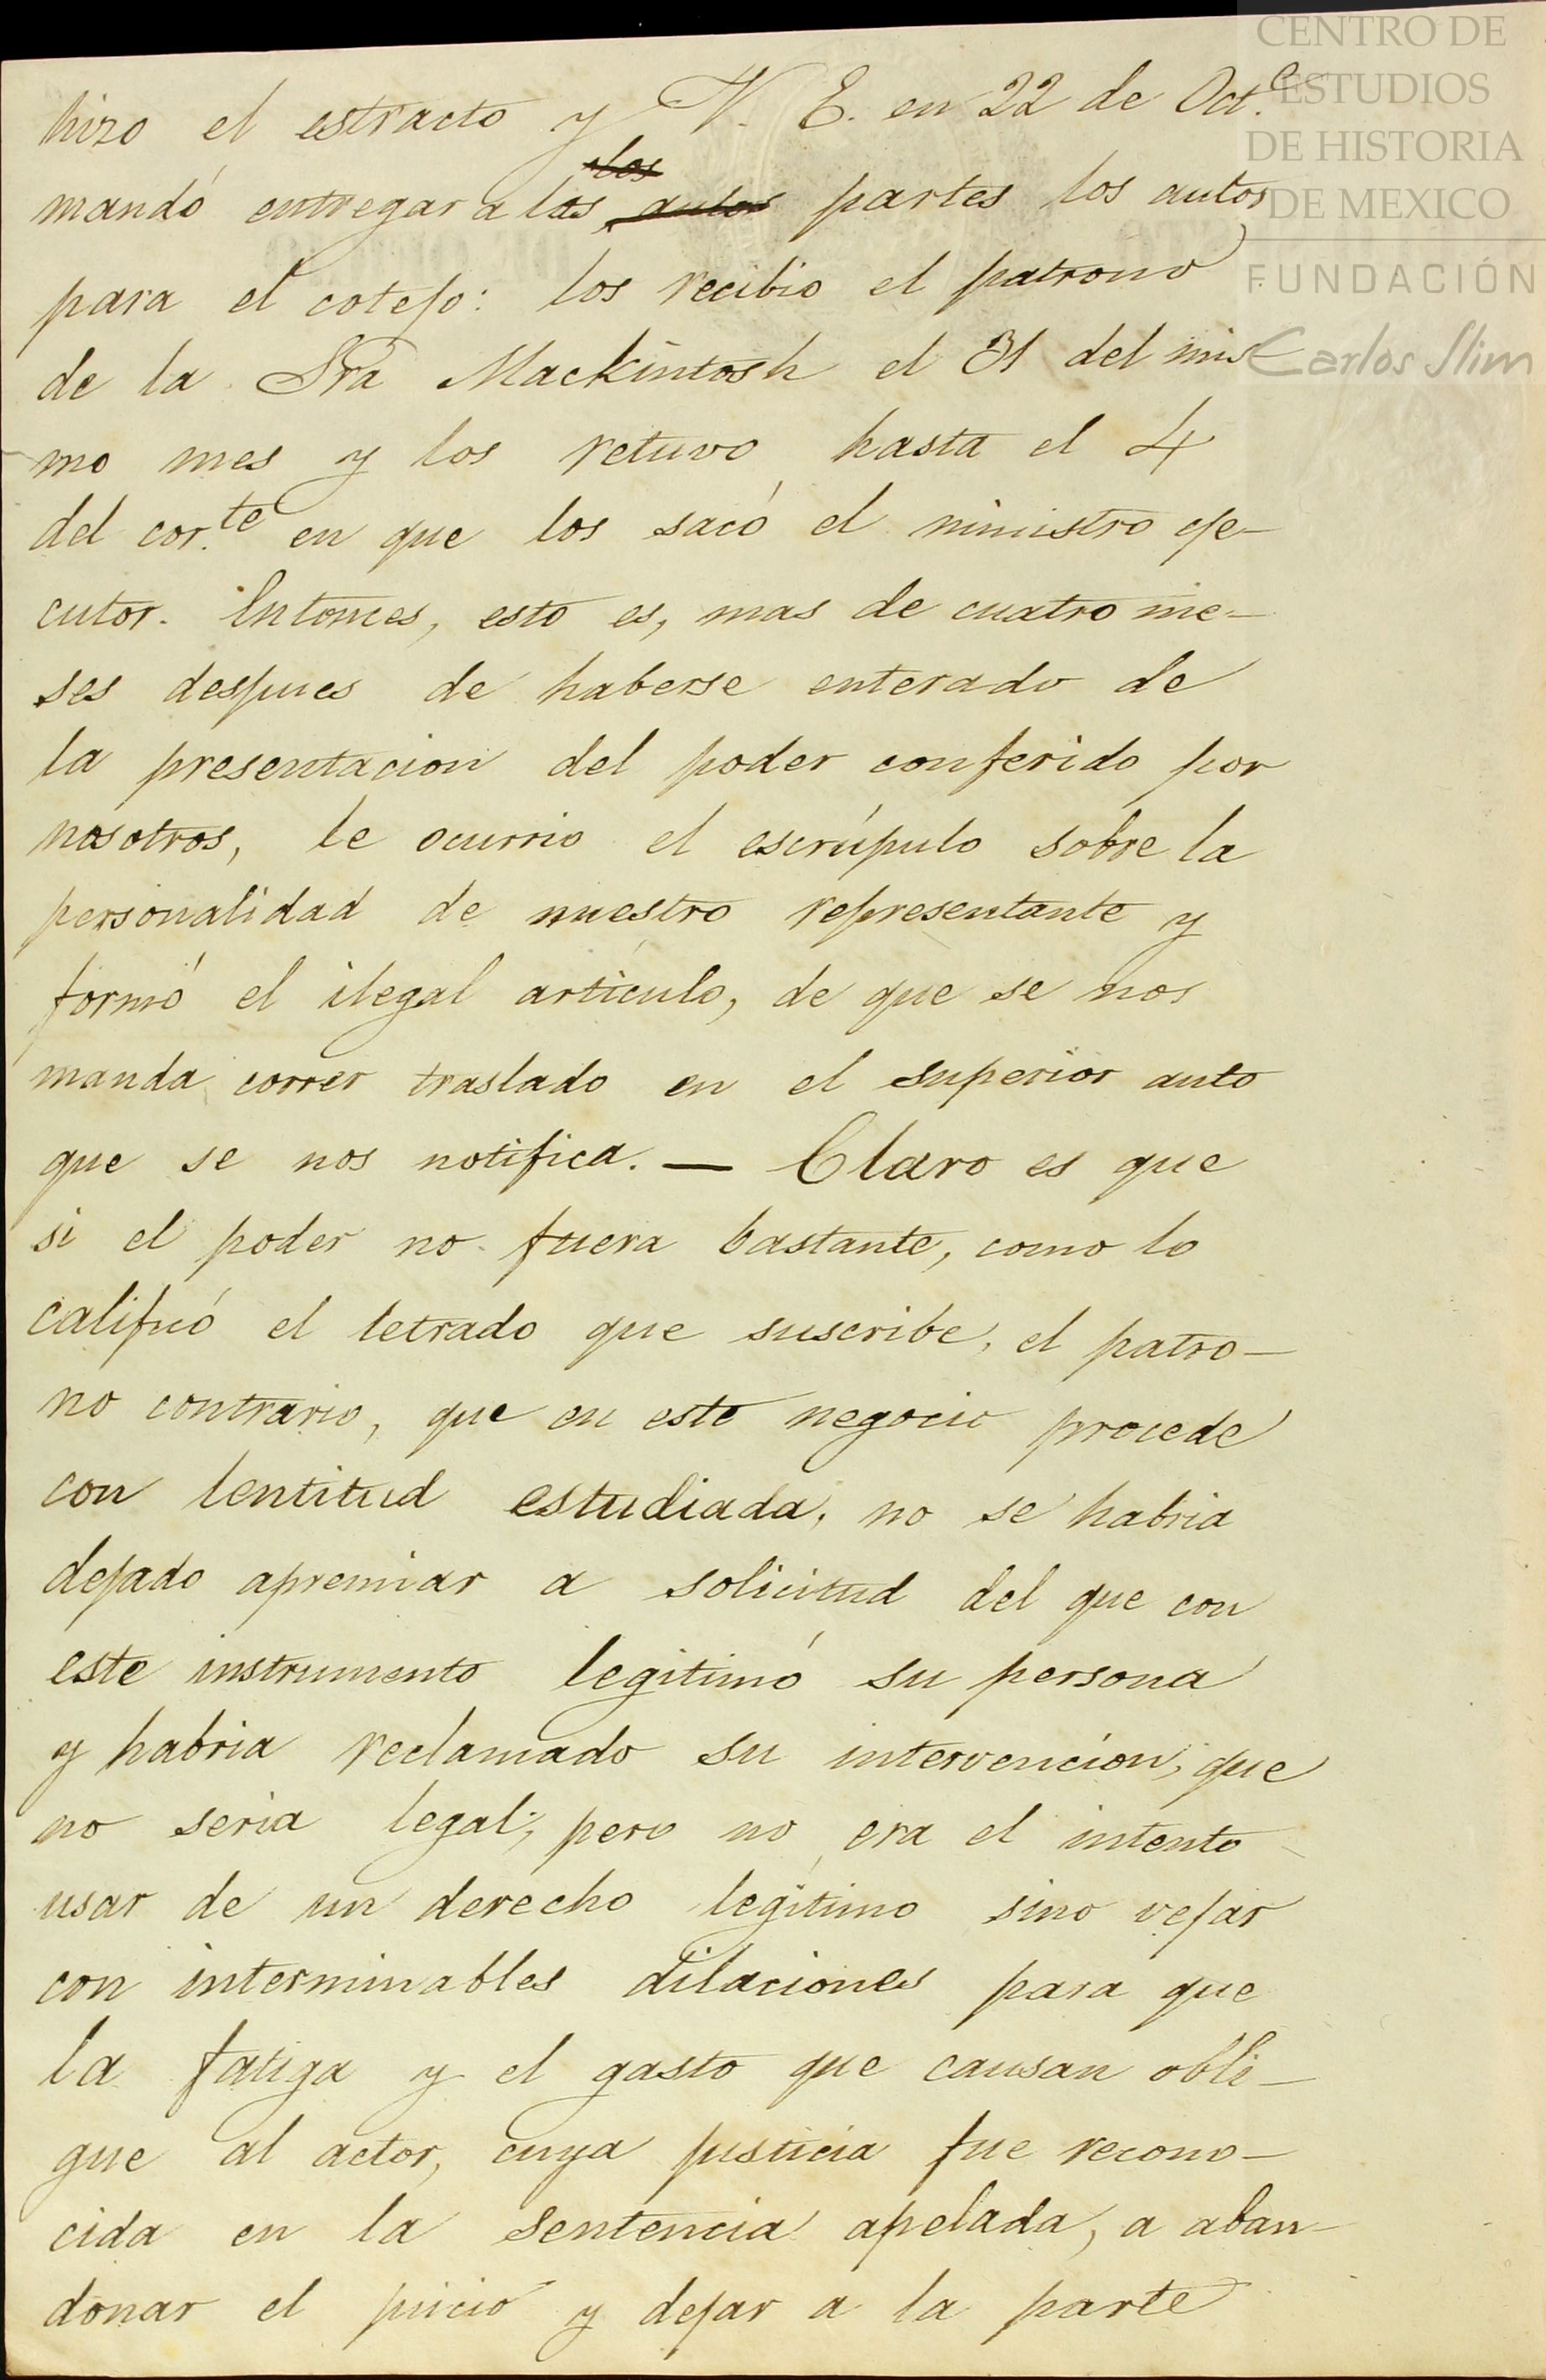 CENTRO DE
ESTUDIOS
DE HISTORIA
DE MEXICO
FUNDACIÓN
Carlos Slim
hizo el estracto y V. E. en 22 de Oct.e
mandó entregar a las los autos partes los autos
para el cotejo: los recibio el patrono
de la Sra Mackintosh el 31 del mis
mo mes y los retuvo hasta el 4
del cor.te en que los sacó el ministro eje-
cutor. Entonces, esto es, mas de cuatro me-
ses despues de haberse enterado de
la presentacion del poder conferido por
nosotros, le ocurrio el escrúpulo sobre la
personalidad de nuestro representante y
formó el ilegal artículo, de que se nos
manda correr traslado en el superior auto
que se nos notifica. — Claro es que
si el poder no fuera bastante, como lo
calificó el letrado que suscribe, el patro-
no contrario, que en este negocio procede
con lentitud estudiada, no se habria
dejado apremiar a solicitud del que con
este instrumento legitimó su persona
y habria reclamado su intervencion, que
no seria legal; pero no era el intento
usar de un derecho legítimo sino vejar
con interminables dilaciones para que
la fatiga y el gasto que causan obli-
gue al actor, cuya justicia fue recono-
cida en la sentencia apelada, a aban-
donar el juicio y dejar a la parte